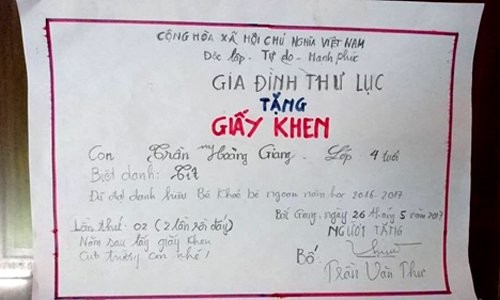 CỘNG HÒA XÃ HỘI CHỦ NGHĨA VIỆT NAM
Độc lập - Tự do - Hạnh phúc
GIA ĐÌNH THƯ LỤC
TẶNG
GIẤY KHEN
Con Trần Hoàng Giang. Lớp 4 tuổi
Biệt danh: Tít
Đã đạt danh hiệu Bé khoẻ bé ngoan năm học 2016-2017
Bắc Giang, ngày 26 tháng 5 năm 2017
Lần thứ: 02 (2 lần rồi đấy)
NGƯỜI TẶNG
Năm sau lấy giấy khen
Của trường con nhé!
Bố:
Trần Văn Thư